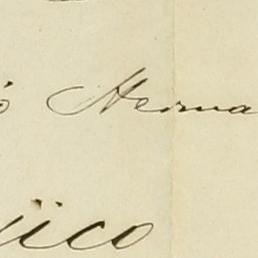 ó Herna
jico